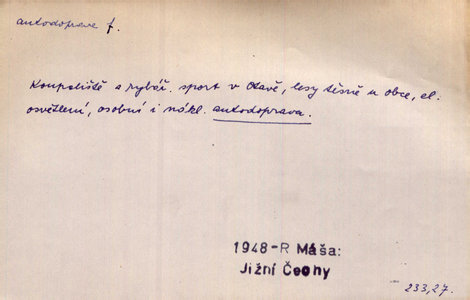 autodoprava f.
Koupaliště a rybář. sport v Otavě, lesy těsně u obce, el.
osvětlení, osobní i nákl. autodoprava.
1948-R Máša:
Jižní Čechy
233,27.